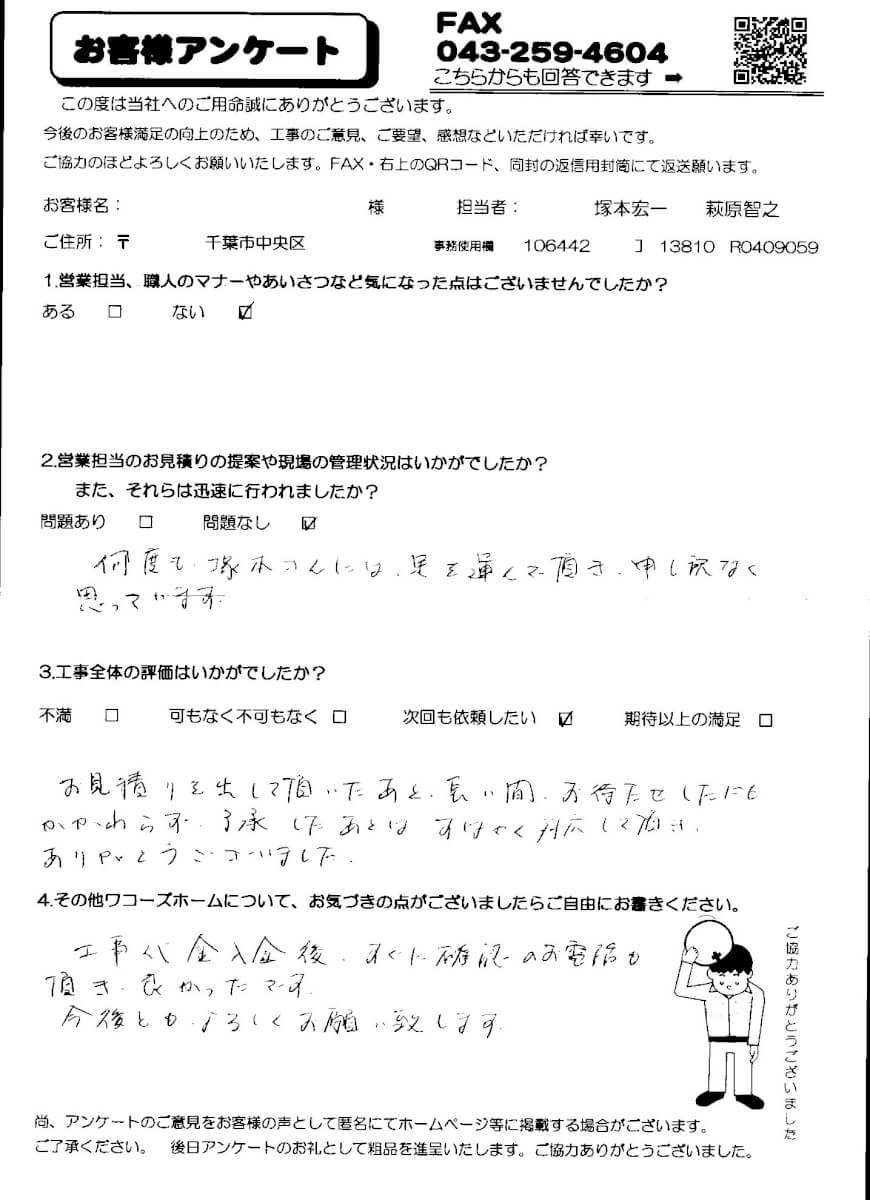 お客様アンケート
FAX
043-259-4604
こちらからも回答できます ➡
この度は当社へのご用命誠にありがとうございます。
今後のお客様満足の向上のため、工事のご意見、ご要望、感想などいただければ幸いです。
ご協力のほどよろしくお願いいたします。FAX・右上のQRコード、同封の返信用封筒にて返送願います。
お客様名： 様 担当者： 塚本宏一 萩原智之
ご住所：〒 千葉市中央区 事務使用欄 106442 ] 13810 R0409059
1.営業担当、職人のマナーやあいさつなど気になった点はございませんでしたか？
ある □ ない ☑
2.営業担当のお見積りの提案や現場の管理状況はいかがでしたか？
また、それらは迅速に行われましたか？
問題あり □ 問題なし ☑
何度も、塚本さんには、足を運んで頂き、申し訳なく
思っています
3.工事全体の評価はいかがでしたか？
不満 □ 可もなく不可もなく □ 次回も依頼したい ☑ 期待以上の満足 □
お見積りを出して頂いたあと、長い間、お待たせしたにも
かかわらず、了承したあとはすばやく対応して頂き、
ありがとうございました。
4.その他ワコーズホームについて、お気づきの点がございましたらご自由にお書きください。
工事代金入金後、すぐに確認のお電話も
頂き、良かったです。
今後とも、よろしくお願い致します。
ご協力ありがとうございました
尚、アンケートのご意見をお客様の声として匿名にてホームページ等に掲載する場合がございます。
ご了承ください。 後日アンケートのお礼として粗品を進呈いたします。ご協力ありがとうございました。